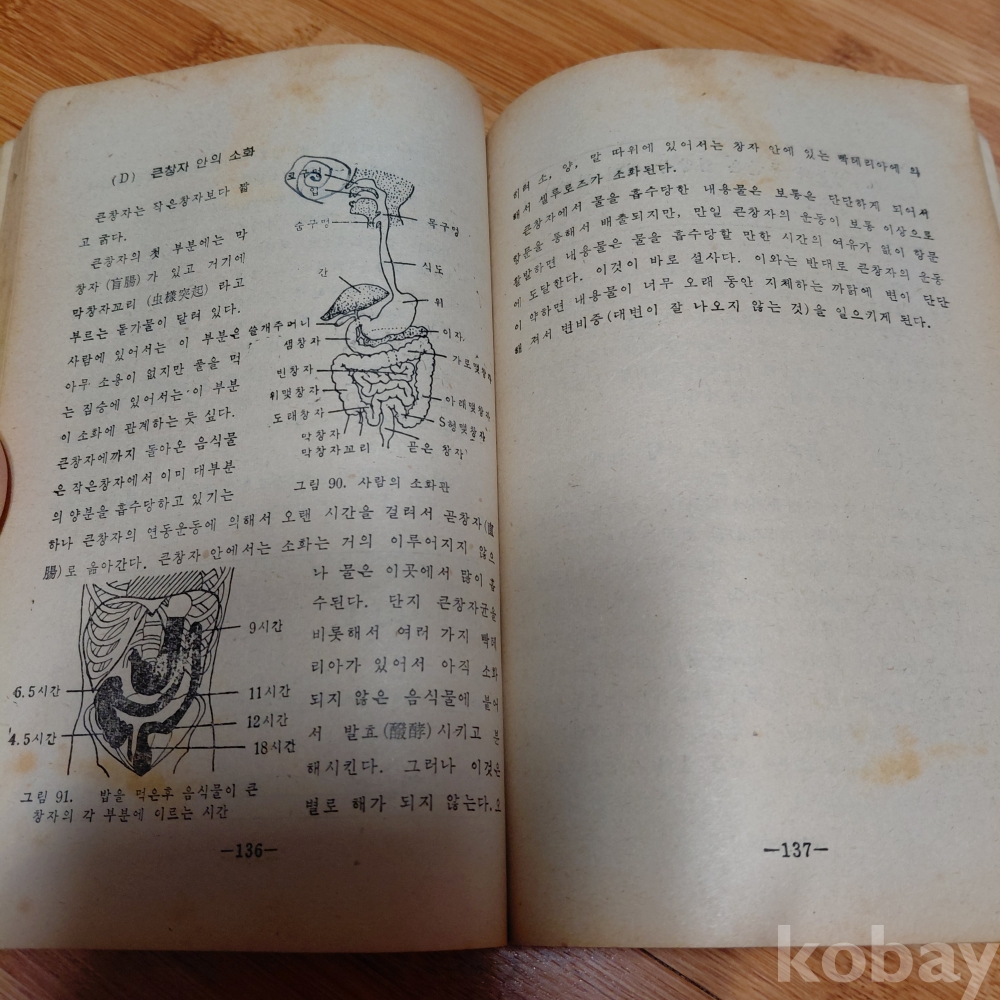 (D) 큰창자 안의 소화
큰창자는 작은창자보다 짧
고 굵다.
큰창자의 첫 부분에는 막
창자(盲腸)가 있고 거기에
막창자꼬리(虫樣突起)라고
부르는 돌기물이 달려 있다.
사람에 있어서는 이 부분은
아무 소용이 없지만 풀을 먹
는 짐승에 있어서는 이 부분
이 소화에 관계하는 듯 싶다.
큰창자에까지 돌아온 음식물
은 작은창자에서 이미 대부분
의 양분을 흡수당하고 있기는
입
숨구멍
목구멍
식도
간
위
쓸개주머니
이자
샘창자
가로맺창자
빈창자
위맺창자
아래맺창자
도래창자
S형맺창자
막창자
막창자꼬리
곧은 창자
그림 90. 사람의 소화관
하나 큰창자의 연동운동에 의해서 오랜 시간을 걸려서 곧창자(直
腸)로 옮아간다. 큰창자 안에서는 소화는 거의 이루어지지 않으
나 물은 이곳에서 많이 흡
수된다. 단지 큰창자균을
비롯해서 여러 가지 빡테
리아가 있어서 아직 소화
되지 않은 음식물에 붙어
서 발효(醱酵)시키고 분
해시킨다. 그러나 이것은
별로 해가 되지 않는다. 오
9시간
6.5시간
11시간
12시간
4.5시간
18시간
그림 91. 밥을 먹은후 음식물이 큰
창자의 각 부분에 이르는 시간
—136—
히려 소, 양, 말 따위에 있어서는 창자 안에 있는 빡테리아에 의
해서 셀루로즈가 소화된다.
큰창자에서 물을 흡수당한 내용물은 보통은 단단하게 되어서
항문을 통해서 배출되지만, 만일 큰창자의 운동이 보통 이상으로
활발하면 내용물은 물을 흡수당할 만한 시간의 여유가 없이 항문
에 도달한다. 이것이 바로 설사다. 이와는 반대로 큰창자의 운동
이 약하면 내용물이 너무 오래 동안 지체하는 까닭에 변이 단단
해 져서 변비증(대변이 잘 나오지 않는 것)을 일으키게 된다.
—137—
kobay